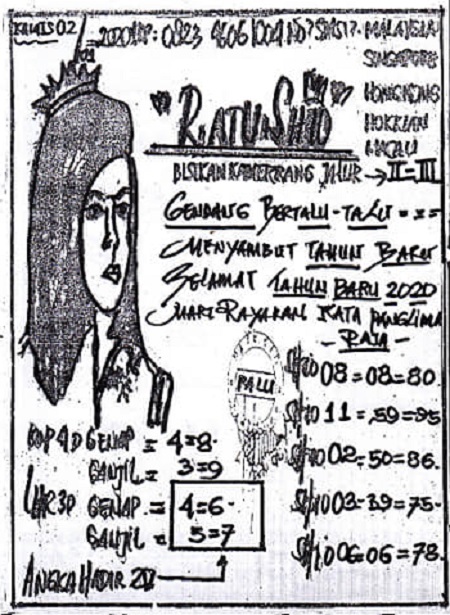 KAMIS 02
MALAYSIA
SINGAPORE
HONGKONG
HOKKIAN
"RATU SHIO"
JALUR → II = III
GENDANG BERTALU-TALU = = =
MENYAMBUT TAHUN BARU
SELAMAT TAHUN BARU 2020
MARI RAYAKAN KATA PANGLIMA
- RAJA -
PALU
SHIO 08 = 08 = 80.
SHIO 11 = 59 = 95
SHIO 02 = 50 = 86.
SHIO 03 = 39 = 75.
SHIO 06 = 06 = 78.
KOP 4D GENAP = 4=8.
GANJIL = 3=9
3D GENAP = 4=6.
GANJIL = 5=7
ANGKA HADIR 2D